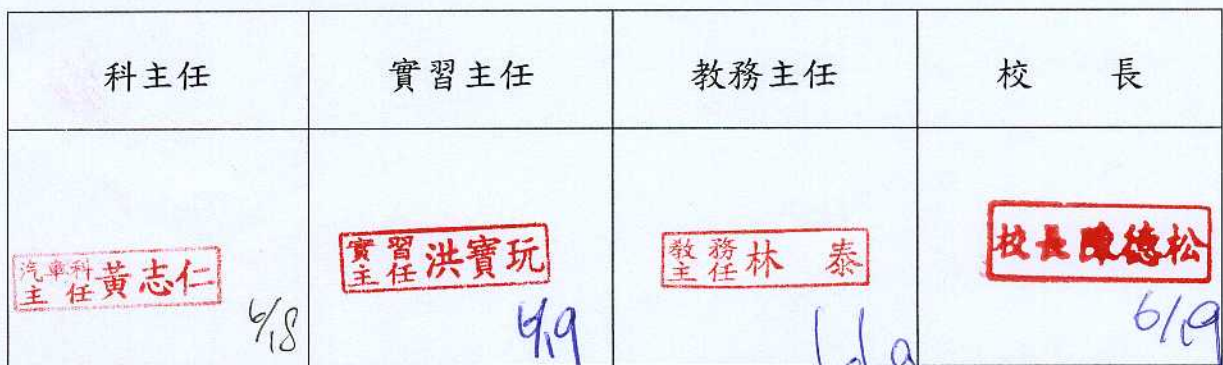 科主任
實習主任
教務主任
校長
汽車科
主任
黃志仁
6/18
實習
主任
洪寶玩
6/19
教務
主任
林泰
校長陳德松
6/19